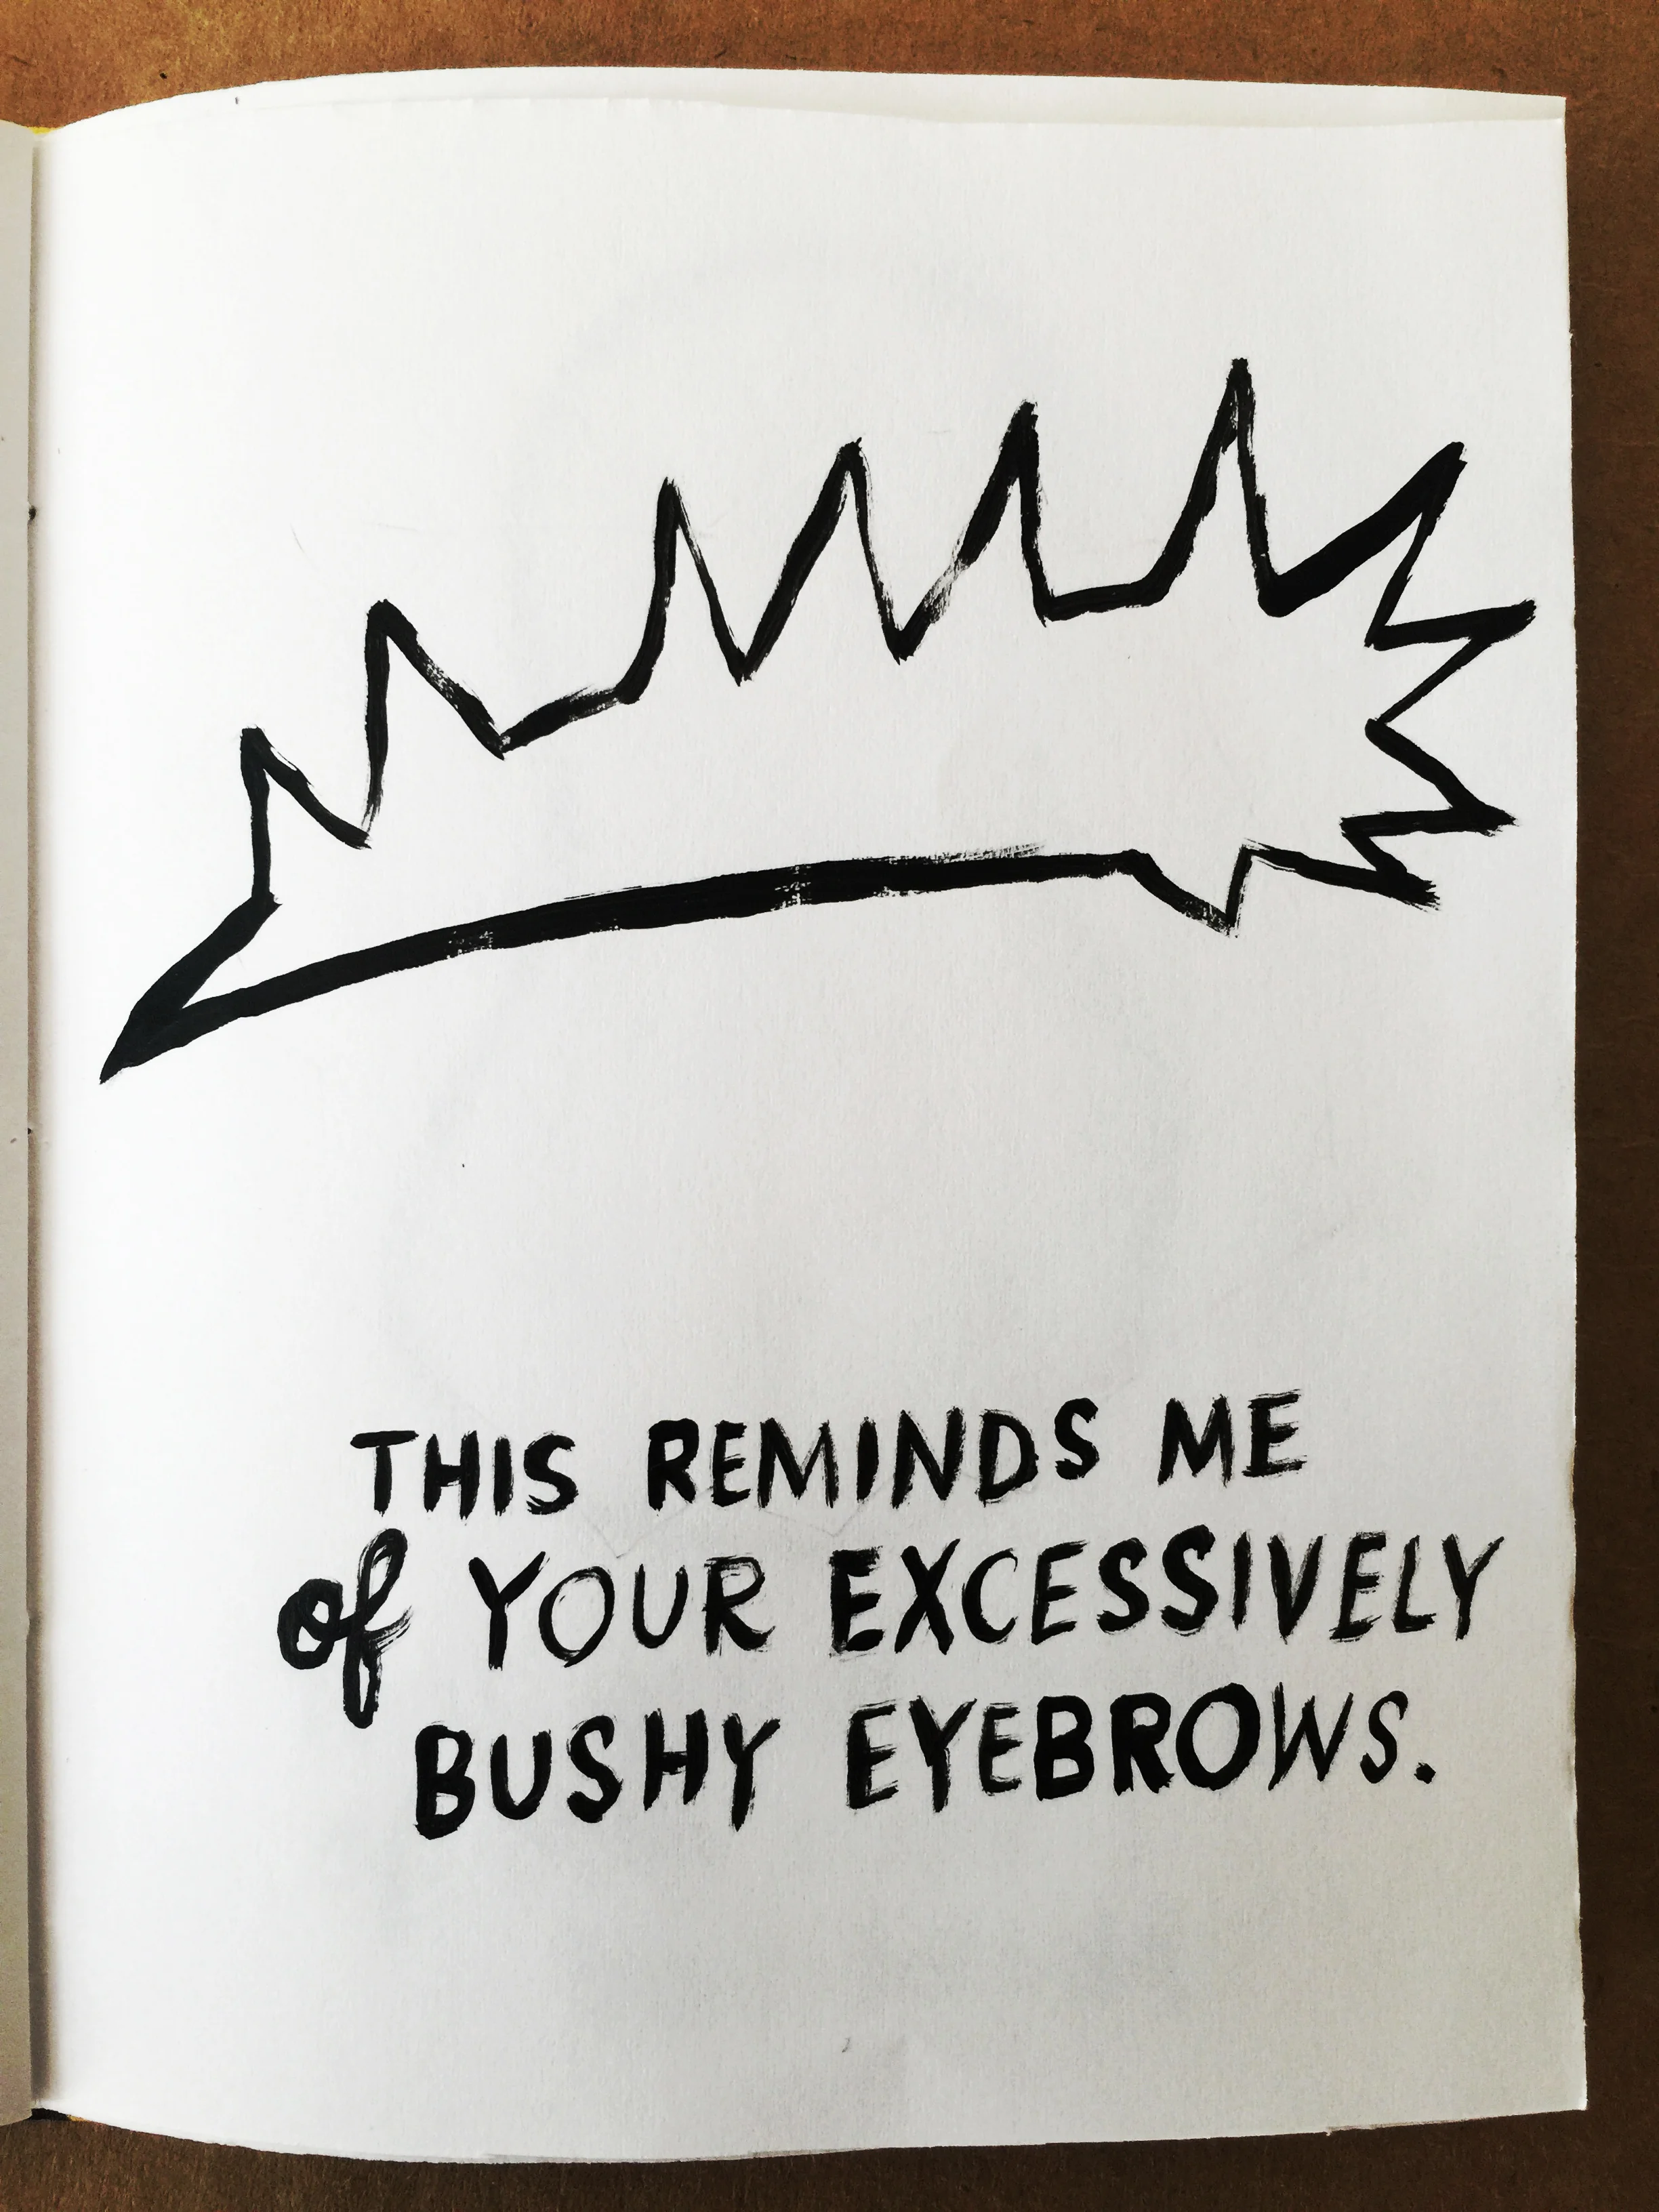 THIS REMINDS ME
of YOUR EXCESSIVELY
BUSHY EYEBROWS.